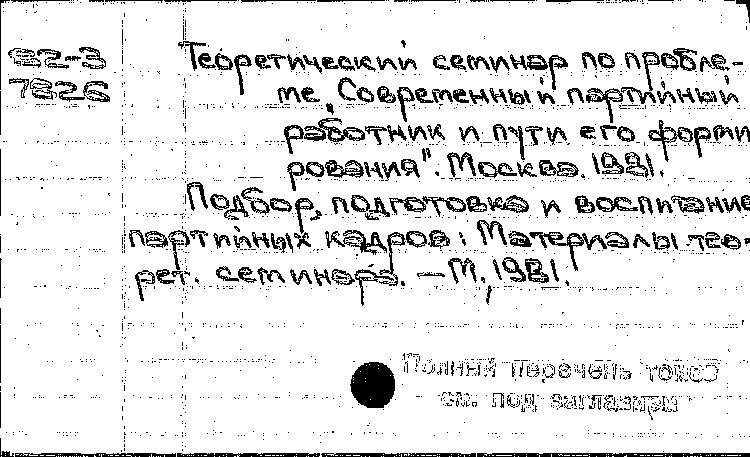 82-3
7826
Теоретический семинар по пробле-
ме „Современный партийный
работник и пути его форми
рования". Москва. 1981.
Подбор, подготовка и воспитание
партийных кадров: Материалы тео-
рет. семинара. — М., 1981.
Полный перечень
см. под заглавием